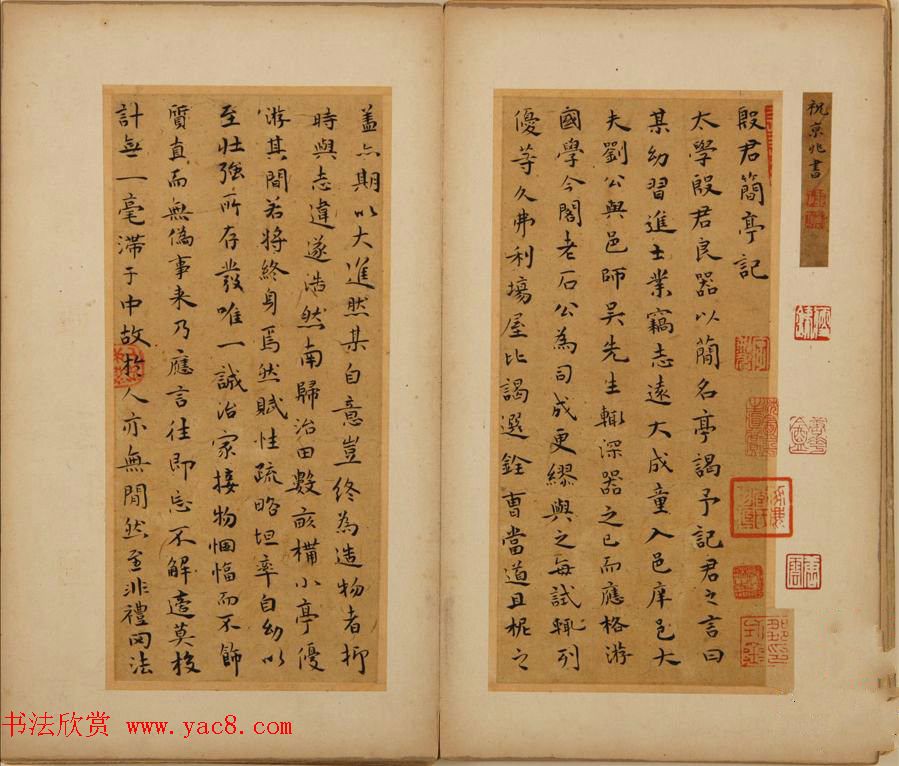 祝京兆書
殷君簡亭記
太學殷君民器以簡名亭謁予記君之言曰
某幼習進士業竊志遠大成童入邑庠邑大
夫劉公與邑師吳先生輙深器之已而應格游
國學今閣老石公為司成更繆與之每試輙列
優等久弗利場屋比謁選銓曹當道且柅之
盖六期以大進然某自意豈終為造物者抑
時與志違遂浩然南歸治田數畝構小亭優
游其間若將終身焉然賦性疏略坦率自幼以
至壮強所存發唯一誠治家接物悃愊而不飾
質直而無偽事来乃應言往即忘不解
計無一毫滯于中故於人亦無閒然至非禮罔法
书法欣赏 www.yac8.com